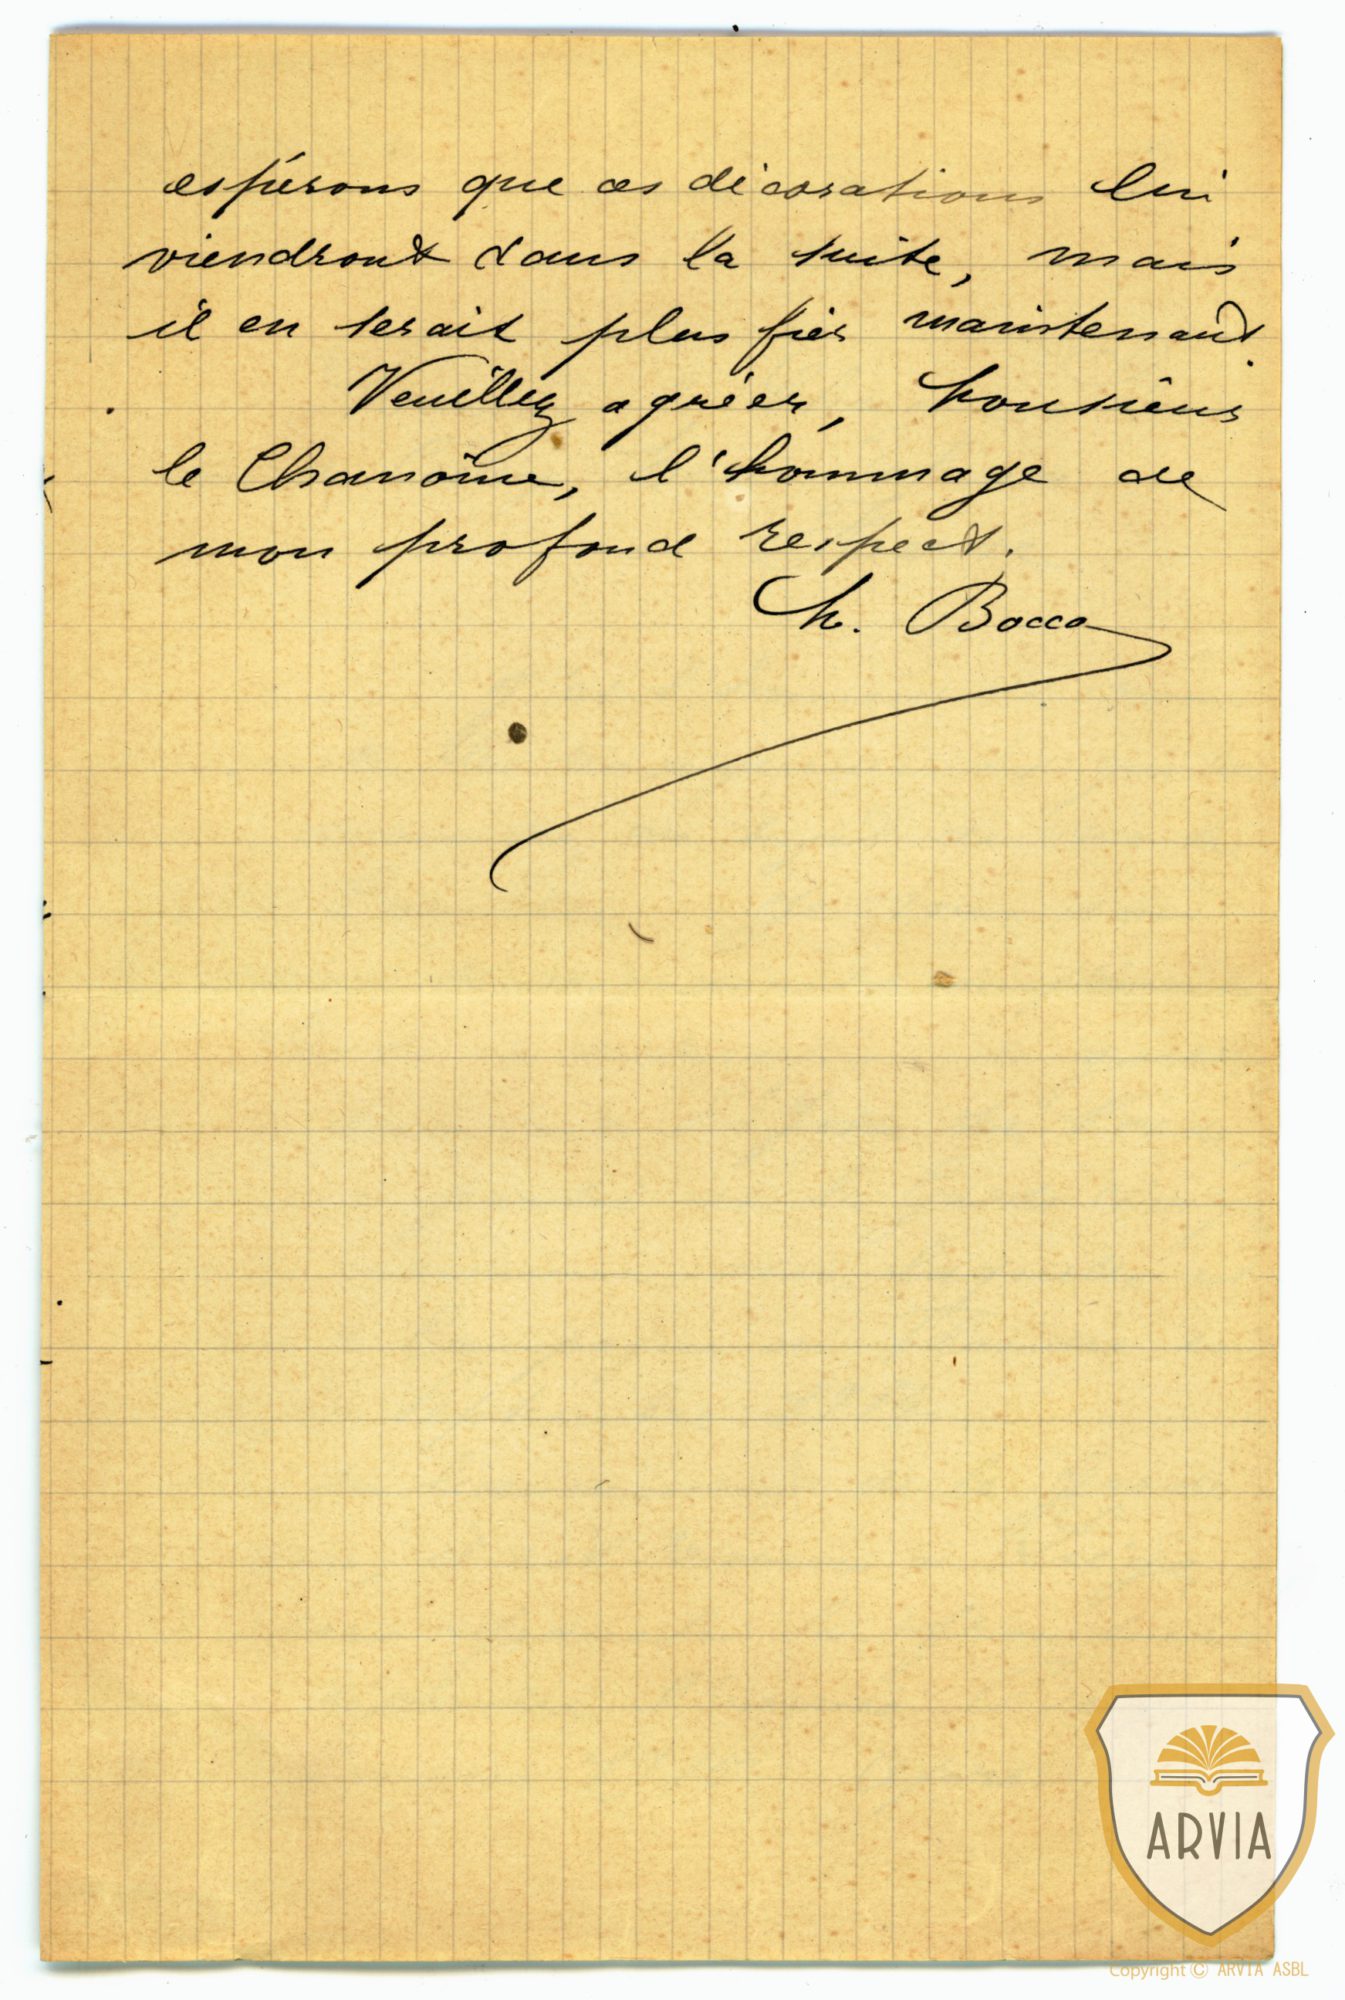 espérons que ces décorations lui
viendront dans la suite, mais
il en serait plus fier maintenant.
Veuillez agréer, Monsieur
le Chanoine, l'hommage de
mon profond respect.
Ch. Bocca
ARVIA
Copyright © ARVIA ASBL